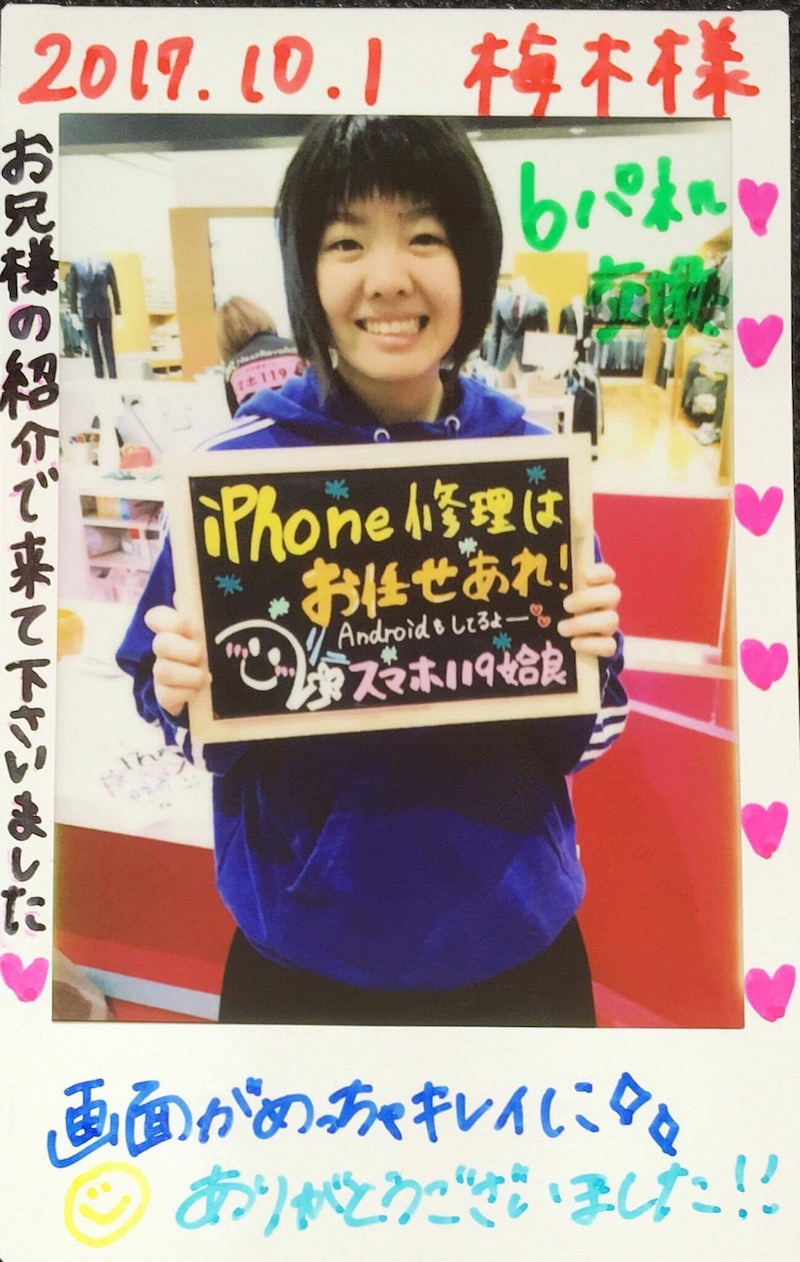 2017.10.1 梅木様
お兄様の紹介で来て下さいました
6パネル
交換
119
iPhone修理は
お任せあれ!
Androidもしてるよー
スマホ119姶良
画面がめっちゃキレイに
ありがとうございました!!